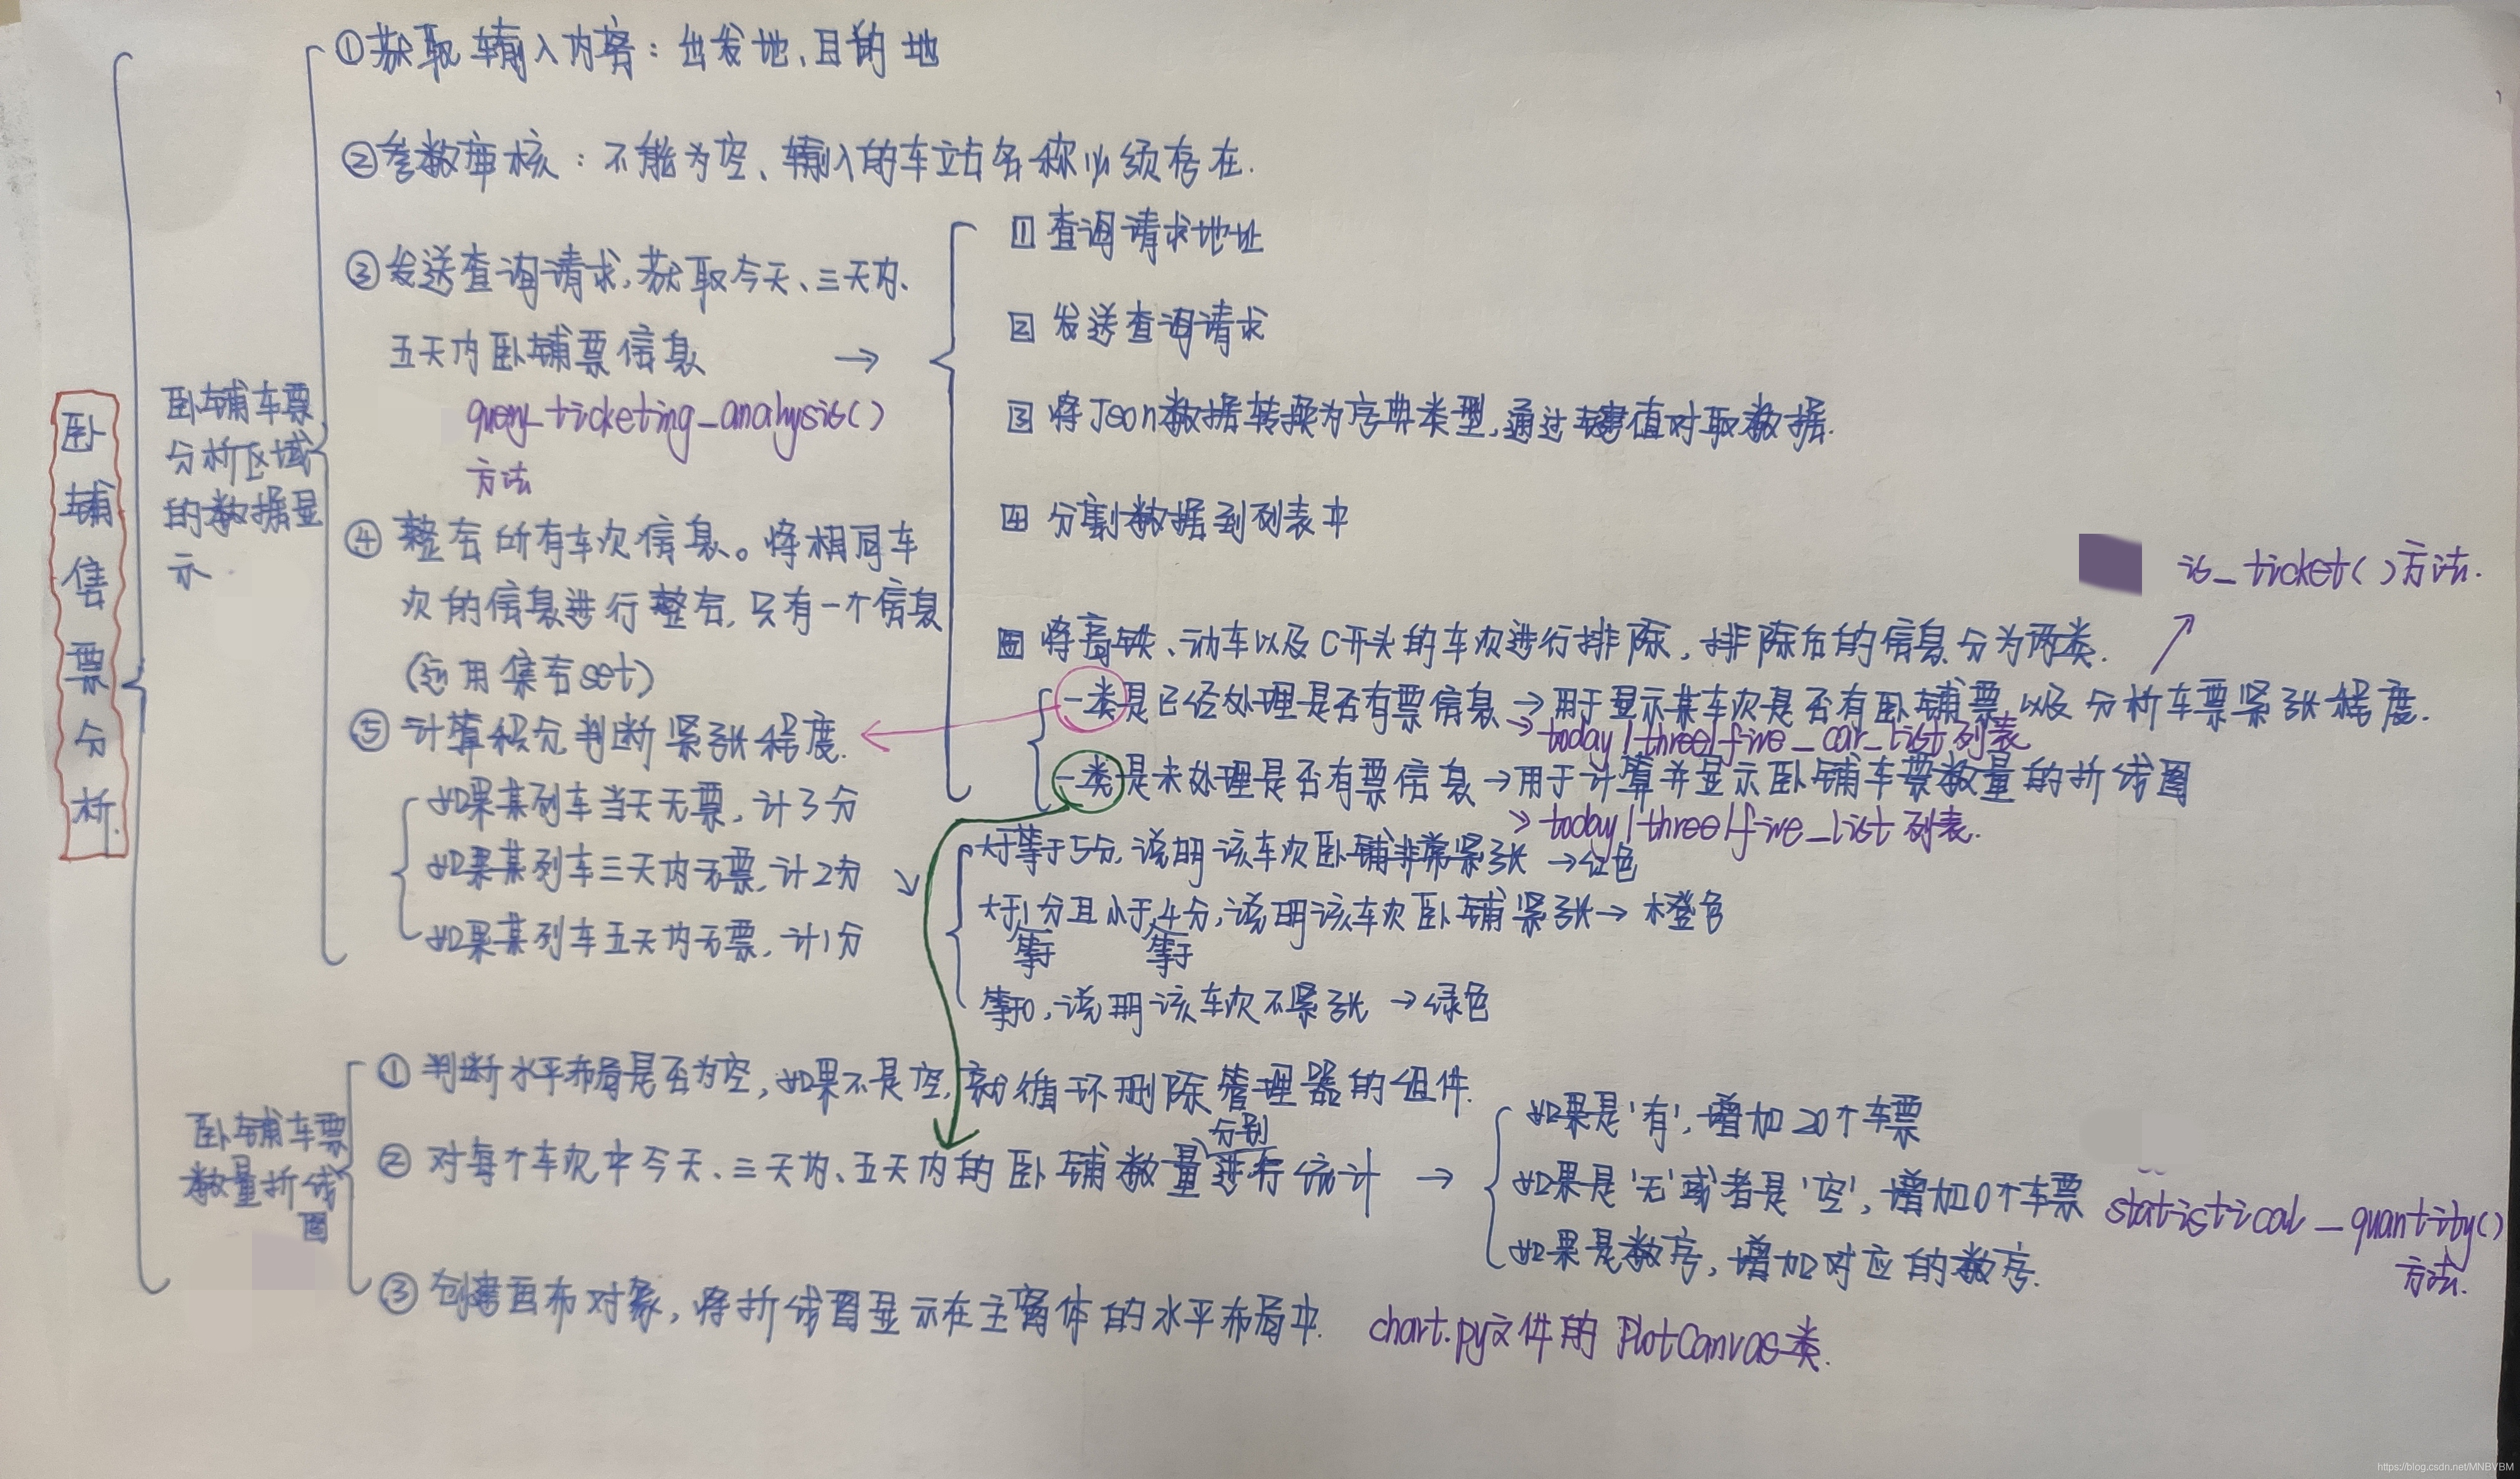 卧铺售票分析.
卧铺车票
分析区域
的数据显
示.
①获取输入内容：出发地、目的地
②参数审核：不能为空、输入的车站名称必须存在.
③发送查询请求,获取今天、三天内、
五天内卧铺票信息 →
query_ticketing_analysis()
方法
1 查询请求地址
2 发送查询请求
3 将Json数据转换为字典类型,通过键值对取数据.
4 分割数据到列表中
将高铁、动车以及C开头的车次进行排除，排除后的信息分为两类.
is_ticket()方法.
一类是已经处理是否有票信息→用于显示某车次是否有卧铺票以及分析车票紧张程度.
→today/three/five_car_list列表
一类是未处理是否有票信息→用于计算并显示卧铺车票数量的折线图
→today/three/five_list列表.
④整合所有车次信息。将相同车
次的信息进行整合,只有一个信息
(运用集合set)
⑤计算积分判断紧张程度.
如果某列车当天无票,计3分
如果某列车三天内无票,计2分
如果某列车五天内无票,计1分
大于等于5分,说明该车次卧铺非常紧张→红色
大于1分且小于4分,说明该车次卧铺紧张→橙色
等于 等于
等于0,说明该车次不紧张→绿色
卧铺车票
数量折线
图
①判断水平布局是否为空,如果不是空,就循环删除管理器的组件.
分别
②对每个车次中今天、三天内、五天内的卧铺数量进行统计→
如果是'有',增加20个车票
如果是'无'或者是'空',增加0个车票
如果是数字,增加对应的数字.
statistical_quantity()
方法.
③创建画布对象,将折线图显示在主窗体的水平布局中. chart.py文件的PlotCanvas类.
https://blog.csdn.net/MNBVBM